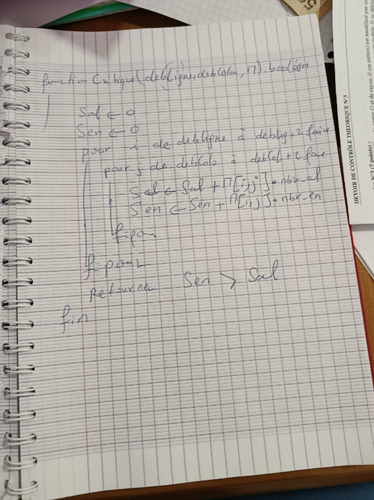 fonction Critique (debligne, debcolon, M) : booleen
Sal ← 0
Sen ← 0
pour i de debligne à deblig+2 faire
pour j de debcolo à debcol+2 faire
Sal ← Sal + M[i,j].nbr_al
Sen ← Sen + M[i,j].nbr_en
fipour
fipour
Retourner Sen > Sal
fin
DEVOIR DE CONTRÔLE THEORIQUE N°3